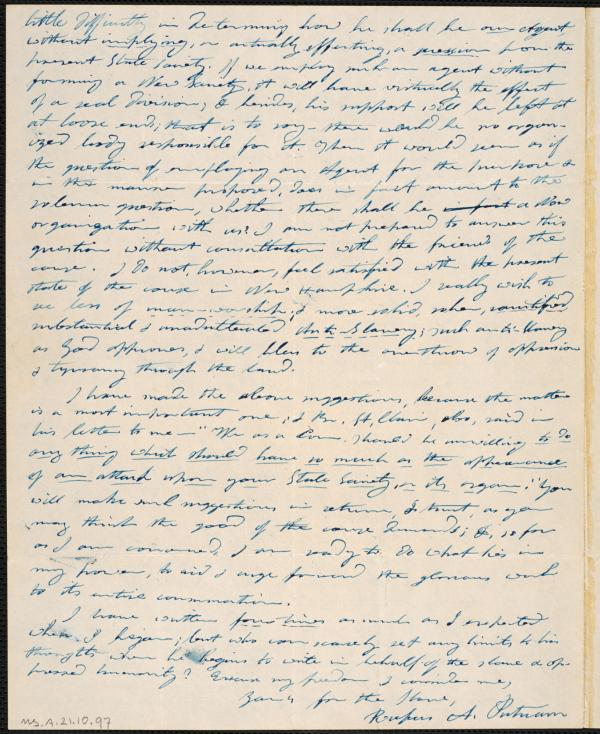 little difficulty, in determining how he shall be our Agent
without implying, or actually effecting, a secession from the
present State Society. If we employ such an agent without
forming a New Society, it will have virtually the effect
of a real division; & besides, his support will be left at
at loose ends; that is to say - there would be no organ-
ized body responsible for it. Then it would seem as if
the question of employing an Agent for the purpose &
in the manner proposed, does in fact amount to the
solemn question, whether there shall be in fact a New
organization with us? I am not prepared to answer this
question without consultation with the friends of the
cause. I do not, however, feel satisfied with the present
state of the cause in New Hampshire. I really wish to
see less of man-worship; & more solid, sober,
substantial & unadulterated Anti-Slavery; such anti-slavery
as God approves, & will bless to the overthrow of oppression
& tyranny through the land.
I have made the above suggestions, because the matter
is a most important one; & Br. St. Clair, also, said in
his letter to me - "We as a Com. should be unwilling to do
any thing which should have so much as the appearance
of an attack upon your State Society, or its organ." You
will make such suggestions in return, I trust, as you
may think the good of the cause demands; &, so far
as I am concerned, I am ready to do what lies in
my power, to aid & urge forward the glorious work
to its entire consummation.
I have written four times as much as I expected
when I began; but who can scarcely set any limits to his
thoughts when he begins to write in behalf of the slave & op-
pressed humanity? Excuse my freedom & consider me,
Yours for the slave,
Rufus A. Putnam
MS.A.21.10.97